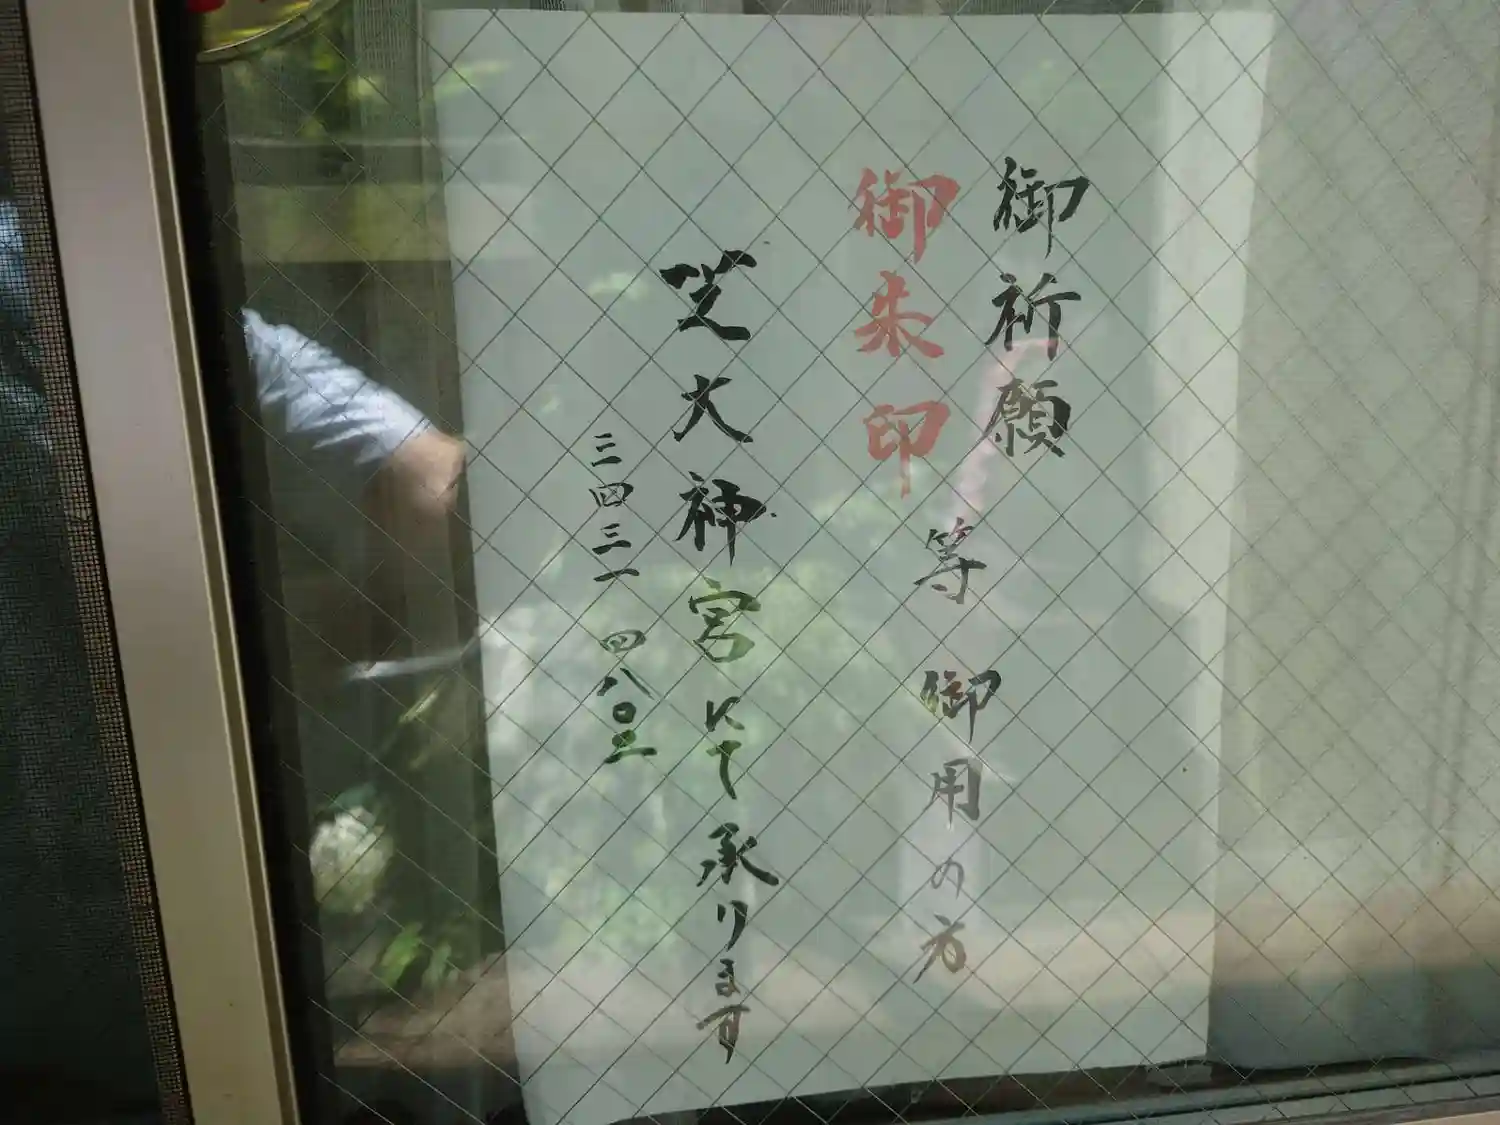 御祈願
御朱印
等御用の方
芝大神宮にて承ります
三四三一 四八〇二